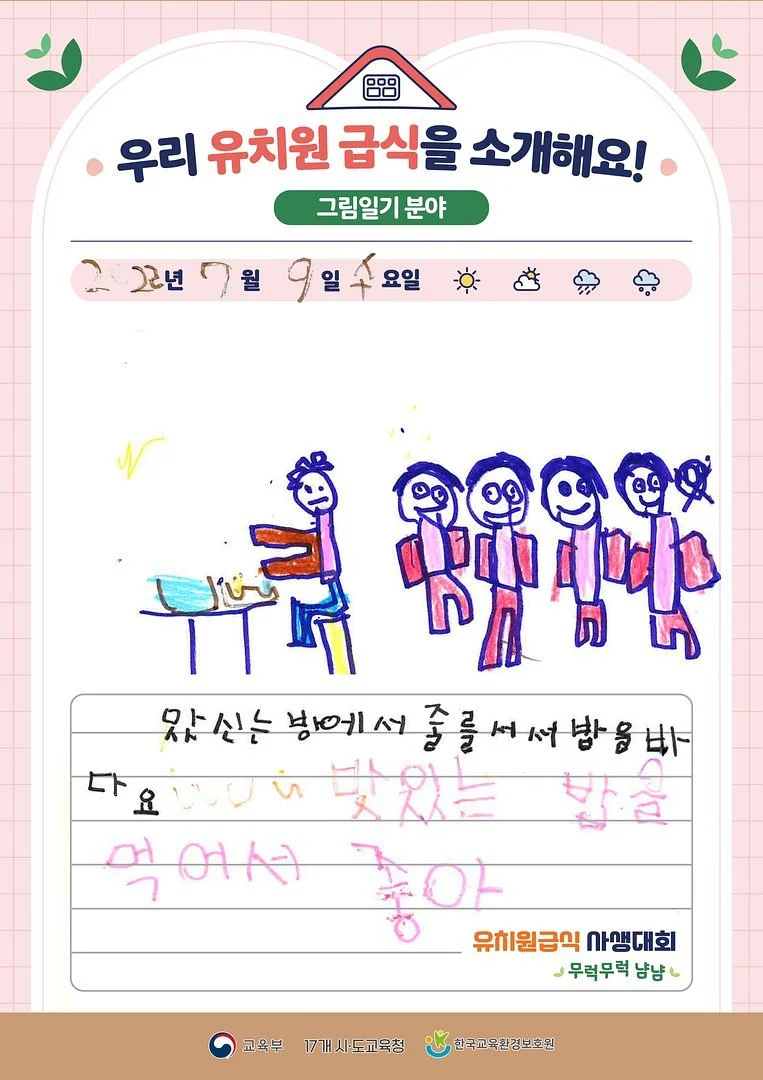 우리 유치원 급식을 소개해요!
그림일기 분야
2022년 7월 9일 수요일
맜신는 방에서 줄를 서서 밥을 바
다요 맛있는 밥을
먹어서 좋아
유치원급식 사생대회
무럭무럭 냠냠
교육부 17개 시·도교육청 한국교육환경보호원